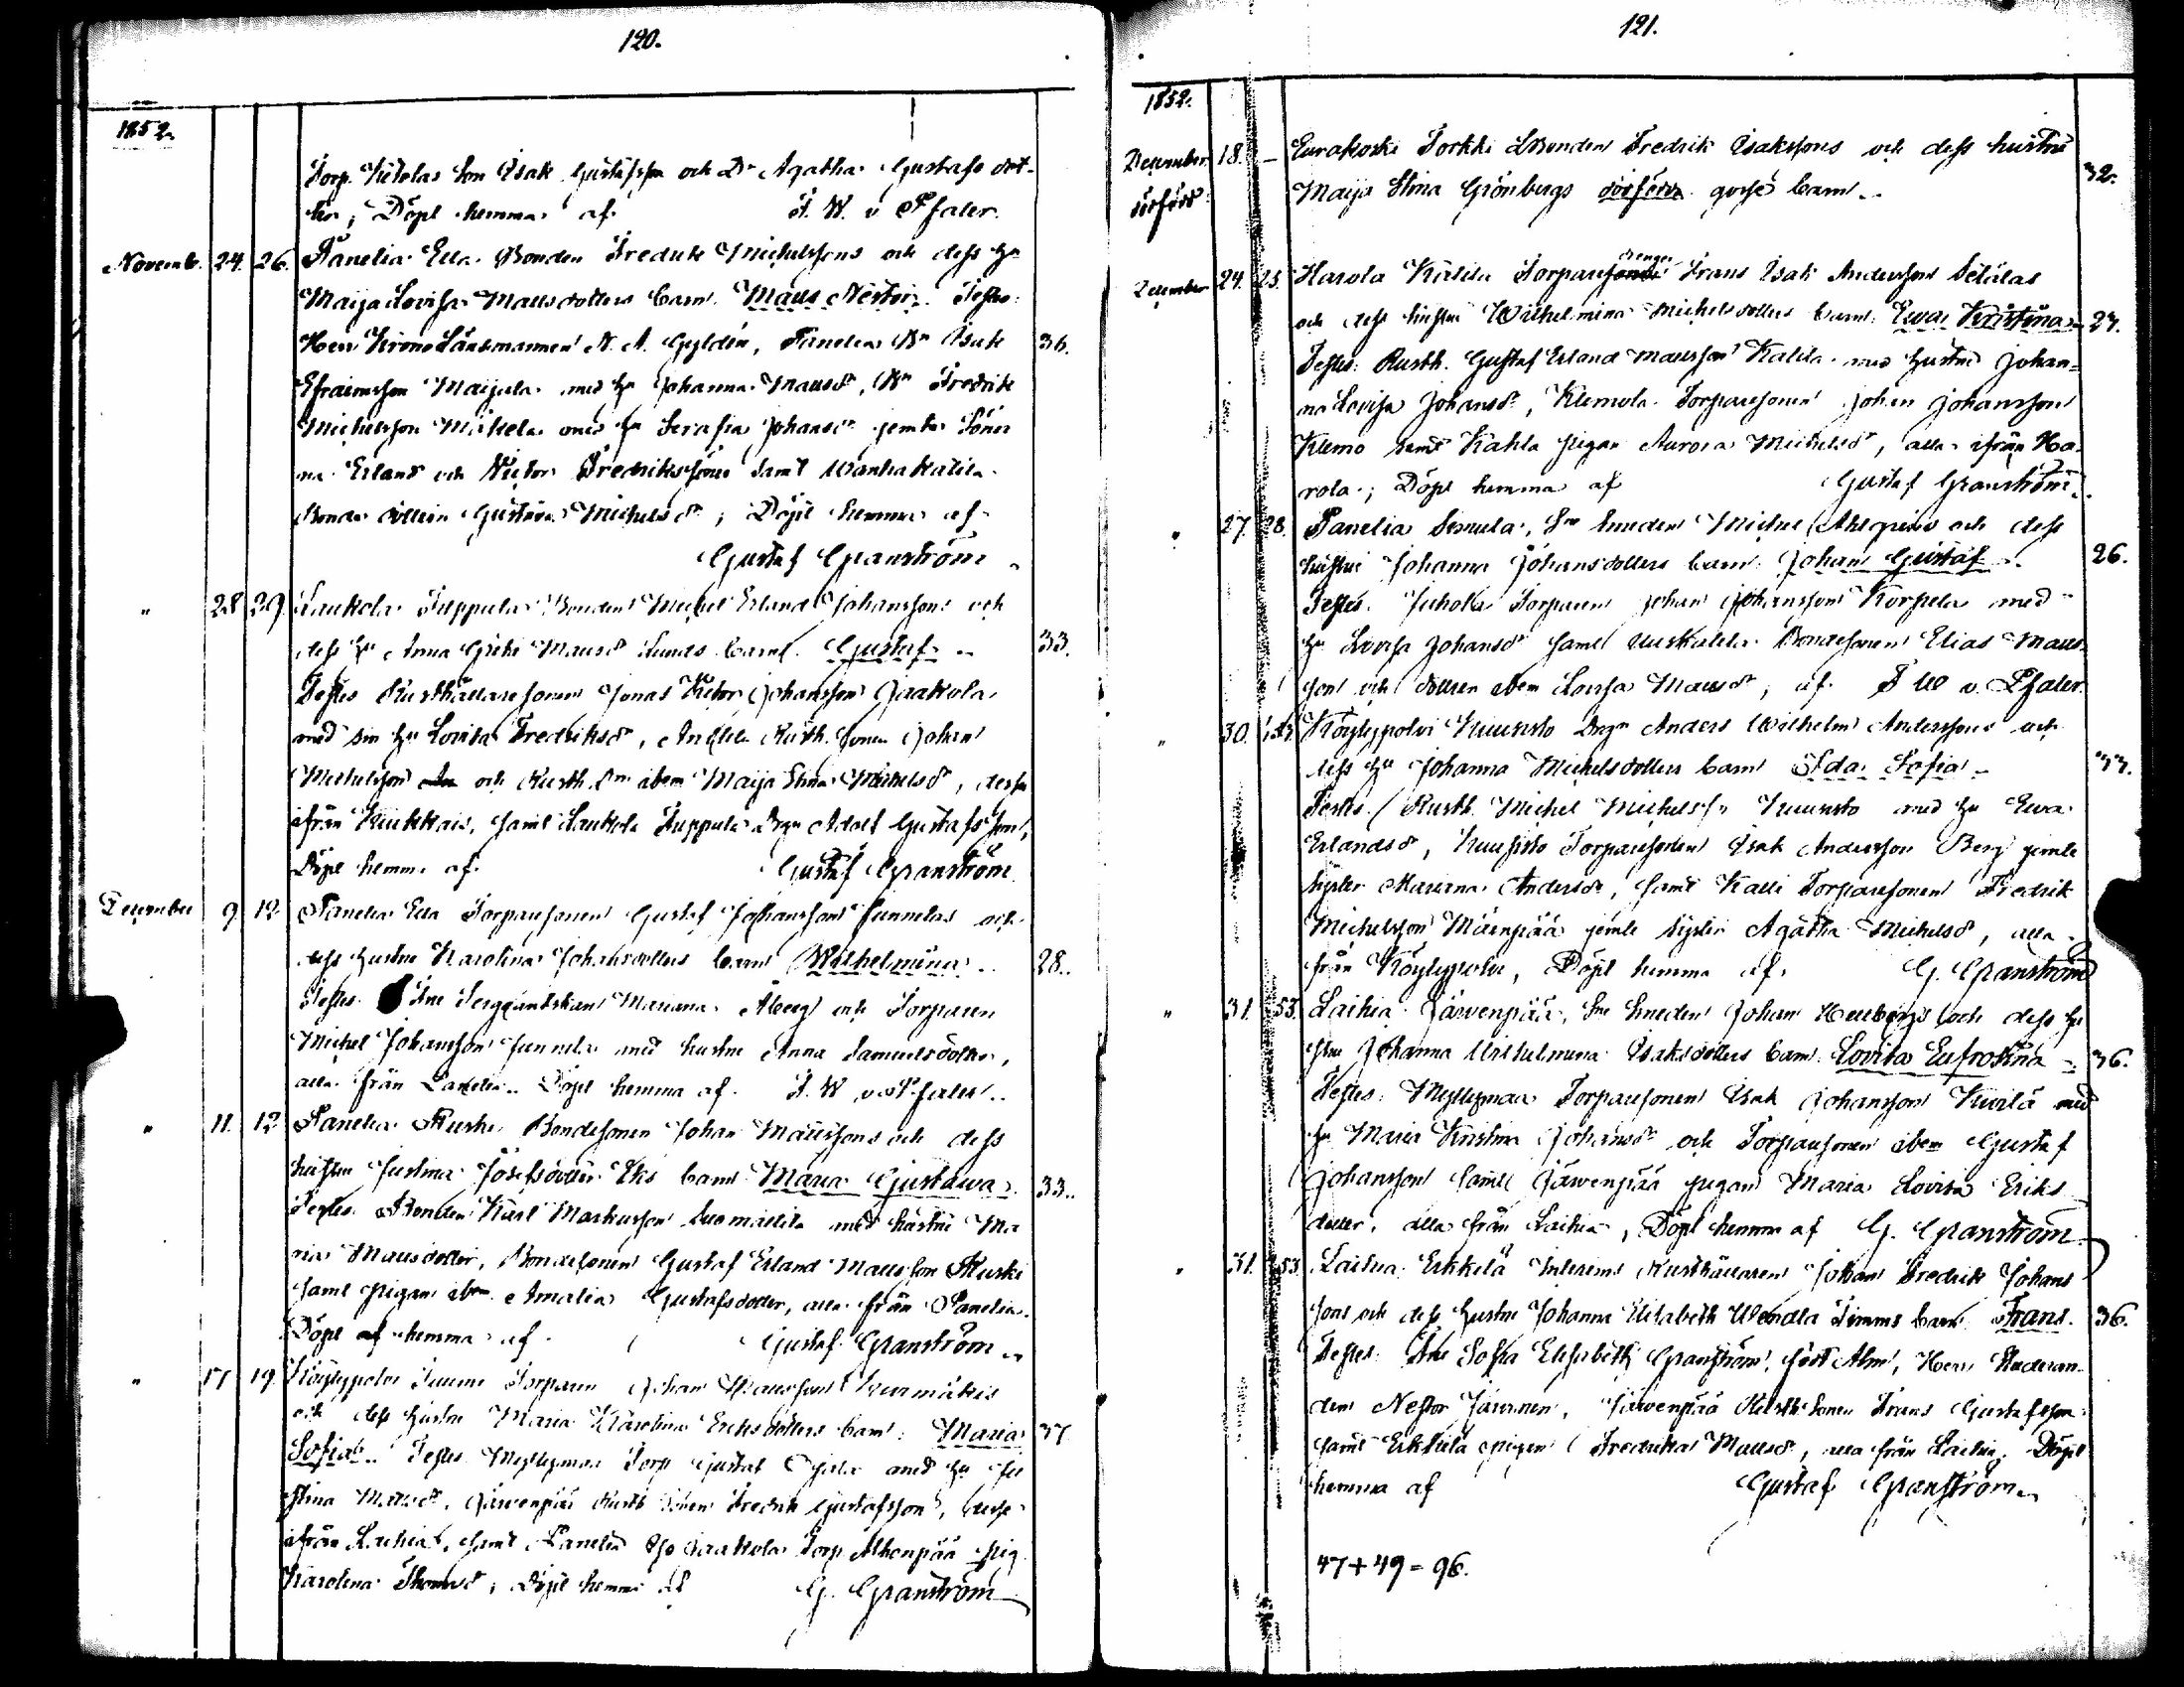 120.
1852.
Torp. Kitelas Son Isak Gustafsson och Dr Agatha Gustafs dot-
ter; Döpt hemma af F. W. v Pfaler.
Novemb. 24. 26. Panelia Ella Bonden Fredrik Michelssons och dess hu
Maija Lovisa Matts dotters barn Matts Nestor. Testes:
Herr Krono Länsmannen N. A. Gyldén, Panelia Bn Isak 36.
Efraimsson Maijala med hu Johanna Mattsdr, Bn Fredrik
Michelsson Mikola med hu Serafia Johansdr jemte Söner
na Erland och Victor Fredrikssöner samt Wanhakatila
Bonde dottren Gustava Michelsdr; Döpt hemma af
Gustaf Granström
" 28 29. Laukola Juppula Bonden Michel Erland Johanssons och
dess hu Anna Greta Mattsdr Lunds barn Gustaf 33.
Testes Rusthållaresonen Jonas Victor Johansson Jaakola
med sin hu Lovisa Fredriksdr, Rusth. sonen Johan
Michelsson och Rusth. Drn ibm Maija Stina Michelsdr, dessa
ifrån Kiukkais, samt Laukola Juppula Drgn Adolf Gustafsson,
Döpt hemma af Gustaf Granström
December 9. 12. Panelia Ella Torparesonen Gustaf Johanssons Junnelas och
dess hustru Karolina Johansdotters barn Wilhelmina 28.
Testes Fru Sergeantskan Mariana Åberg och Torparen
Michel Johansson Junnila med hustru Anna Samuelsdotter,
alla från Panelia. Döpt hemma af F. W. v Pfaler.
" 11. 12. Panelia Ruski Bondesonen Johan Mattssons och dess
hustru Justina Josefsdotter Eks barn Maria Gustawa. 33.
Testes Bonden Karl Markusson Suomallila med hustru Ma
ria Mattsdotter, Bondesonen Gustaf Erland Mattsson Ruski
samt pigan ibm Amalia Gustafsdotter, alla från Panelia.
Döpt af hemma af Gustaf Granström
" 17 19. Köylypolvi Torparen Johan Mattssons
och dess hustru Maria Karolina Eriksdotters barn: Maria 37
Sofia. Testes Myllymaa Torp. Gustaf Ojala med hu Ju
stina Mattsdr, Järwenpää Rusth. sonen Fredrik Gustafsson,
ifrån Laihia, samt Panelia Jaakola Torp. Alhonpää pig.
Karolina Thomasdr; Döpt hemma af G. Granström
121.
1852.
December 18. – Eurakoski Torkki LBonden Fredrik Isakssons och dess hustru 32.
dödföd Maija Stina Grönbergs dödfödda gosse barn.
December 24. 25. Harola Katila Torpare Dränge Frans Isak Andersson Setälas
och dess hustru Wilhelmina Michelsdotters barn: Ewa Kristina 27.
Testes: Rusth. Gustaf Erland Mattsson Katila med hustru Johan-
na Lovisa Johansdr, Klemola Torparesonen Johan Johansson
Klemo samt Kahla pigan Aurora Michelsdr, alla ifrån Ha-
rola; Döpt hemma af Gustaf Granström.
" 27. 28. Panelia Simula, Smeden Michel Ahlqvists och dess
hustru Johanna Johansdotters barn Johan Gustaf 26.
Testes. Juhola Torparen Johan Johansson Korpela med
hu Lovisa Johansdr samt Uuskalila Bondesonen Elias Matts
son och dottren ibm Lovisa Mattsdr, af F W v. Pfaler.
" 30. Köylypolvi Kuuisto Drgn Anders Wilhelm Anderssons och
dess hu Johanna Michelsdotters barn Ida Sofia
Testes. Rusth. Michel Michelsson Kuuisto med hu Ewa
Erlandsdr, Kuuisto Torparesonen Isak Andersson Berg jemte
syster Mariana Andersdr, samt Kalli Torparesonen Fredrik
Michelsson Mäenpää jemte syster Agatha Michelsdr, alla
från Köylypolvi, Döpt hemma af G. Granström
" 31. 53. Laihia Järwenpää, Smeden Johan Hellbergs och dess hu
stru Johanna Wilhelmina Isaksdotters barn Lovisa Eufrosina 36.
Testes: Myllymaa Torparesonen Isak Johansson Kivilä med
hu Maria Kristina Johansdr och Torparesonen ibm Gustaf
Johansson samt Järwenpää pigan Maria Lovisa Eriks
dotter, alla från Laihia, Döpt hemma af G. Granström
" 31. 53. Laihia Erkkilä Interims Rusthållaren Johan Fredrik Johans
sons och dess hustru Johanna Elisabeth Wendla Timms barn Frans. 36.
Testes: Fru Sofia Elisabeth Granström, född Alm, Herr Studeran-
den Nestor Järvinen, Järwenpää Rusth. Sonen Frans Gustafsson
samt Erkkilä pigan Fredrika Mattsdr, alla från Laihia. Döpt
hemma af Gustaf Granström
47+49=96.